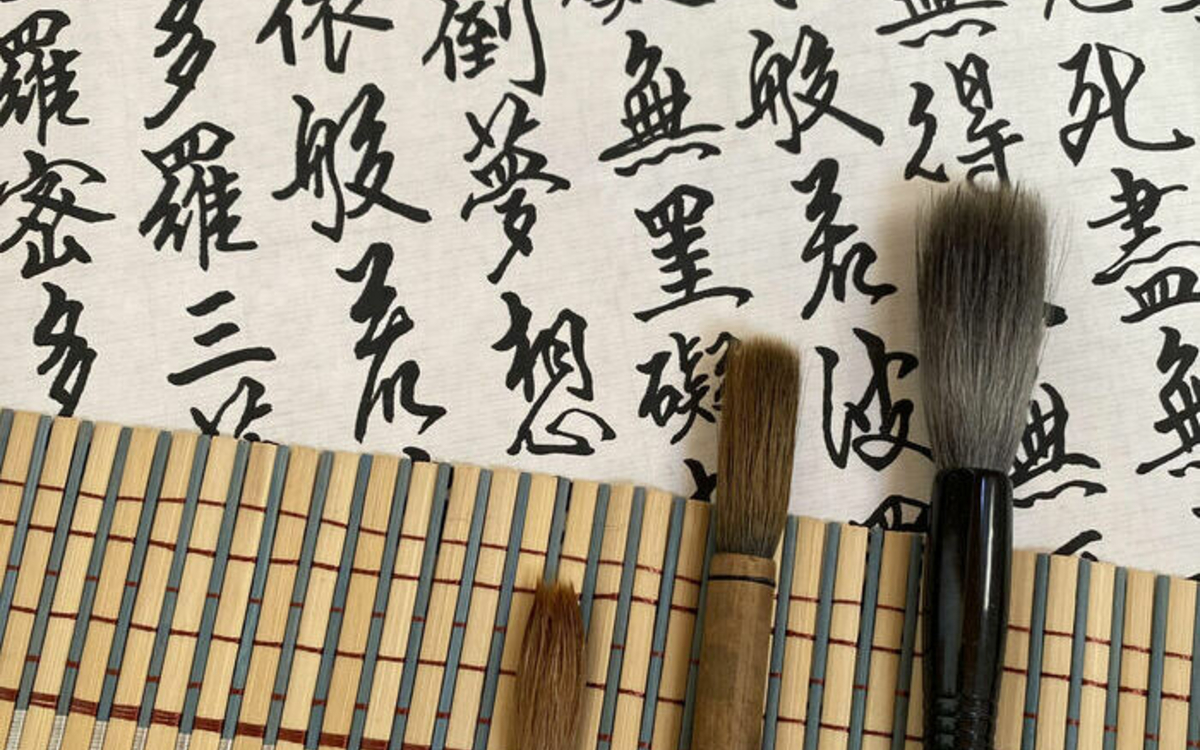 死盡無
無得無
般若波
無罣礙
倒夢想
依般若
多羅三
羅密多